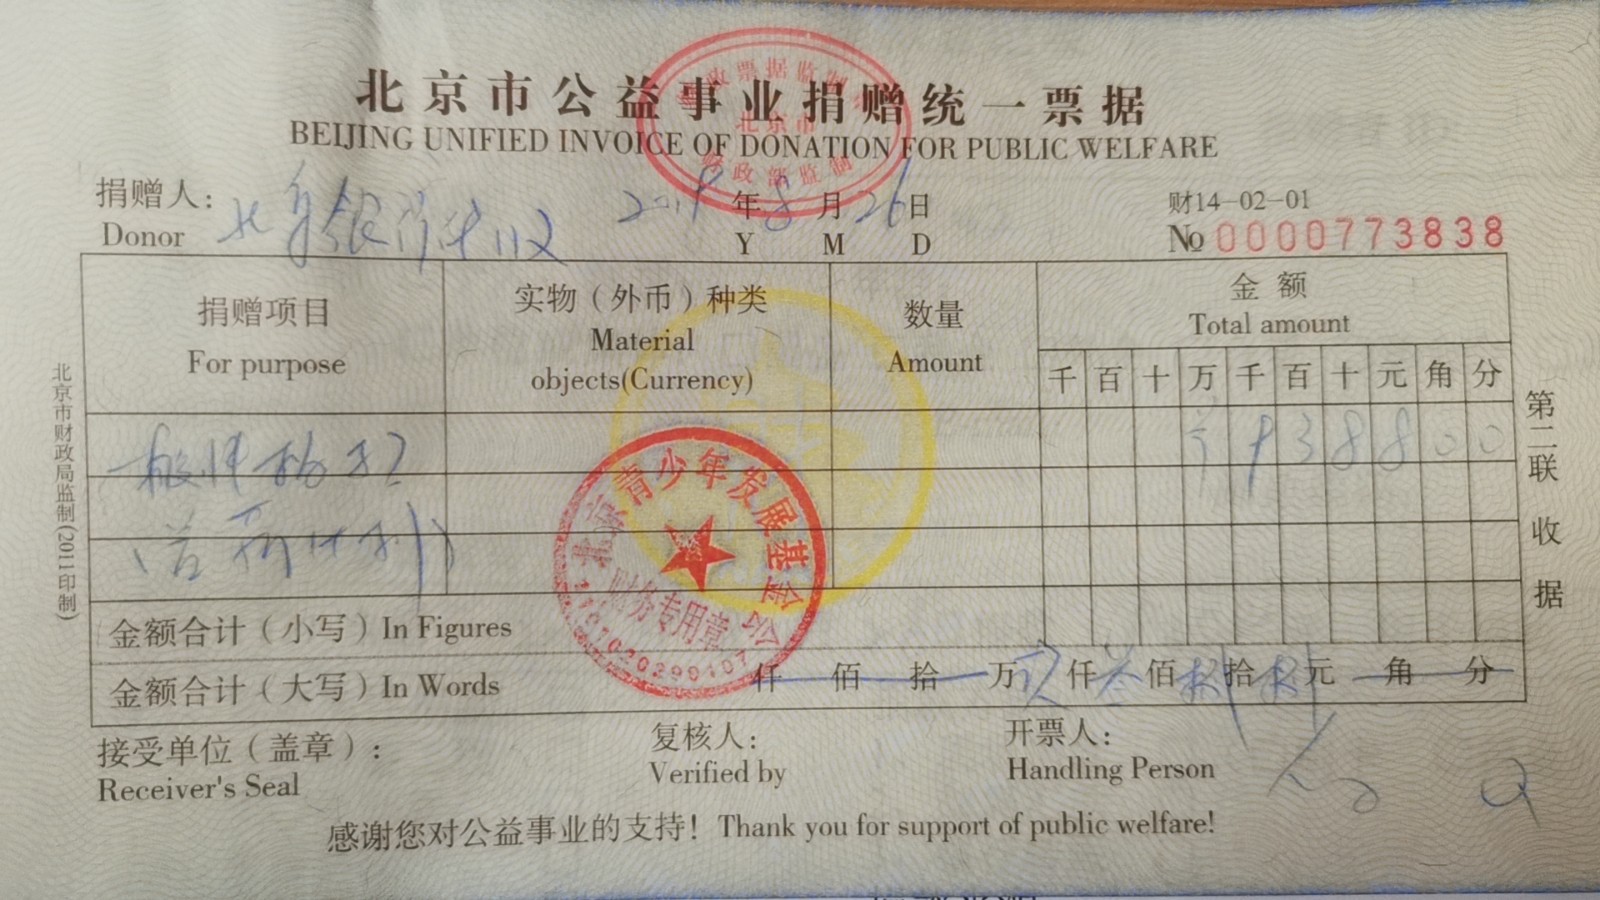 北京市公益事业捐赠统一票据
BEIJING UNIFIED INVOICE OF DONATION FOR PUBLIC WELFARE
财政票据监制
北京市
财政部监制
捐赠人：
Donor
2019年8月26日
Y M D
财14-02-01
№ 0000773838
捐赠项目
For purpose
实物（外币）种类
Material
objects(Currency)
数量
Amount
金额
Total amount
千 百 十 万 千 百 十 元 角 分
9 3 8 8 0 0
北京青少年发展基金会
财务专用章
金额合计（小写）In Figures
金额合计（大写）In Words
仟 佰 拾 万 玖 仟 叁 佰 捌 拾 捌 元 角 分
接受单位（盖章）：
Receiver's Seal
复核人：
Verified by
开票人：
Handling Person
感谢您对公益事业的支持！Thank you for support of public welfare!
北京市财政局监制(2011印制)
第二联 收据